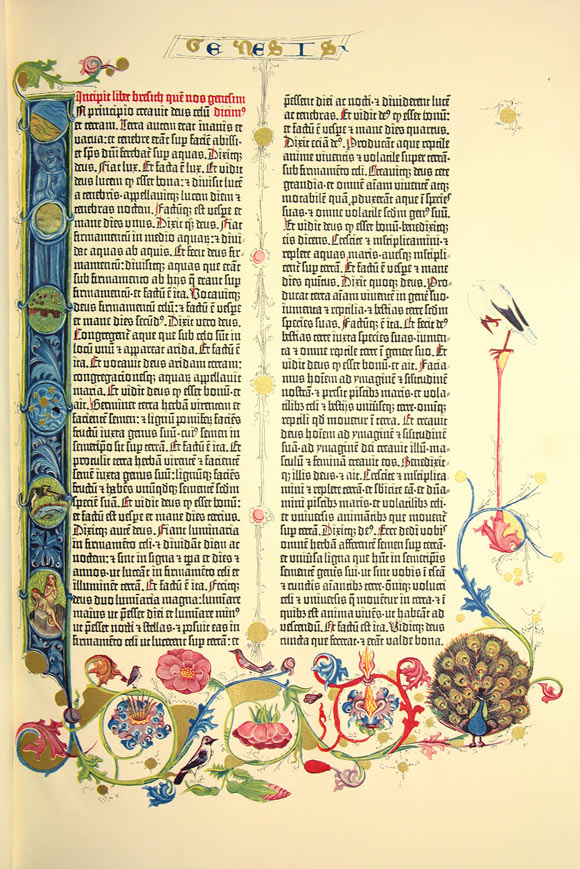 GENESIS
Incipit liber bresith quē nos genesim
In principio creavit deus celū dicim⁹
et terram. Terra autem erat inanis et
vacua: et tenebre erāt sup faciē abissi:
et spūs dñi ferebatur sup aquas. Dixitq⁊
deus. Fiat lux. Et facta ē lux. Et vidit
deus lucem ꝙ esset bona: ⁊ divisit lucē
a tenebris. appellavitq⁊ lucem diem ⁊
tenebras noctem. Factūq⁊ est vespe et
mane dies unus. Dixit q⁊ deus. Fiat
firmamentū in medio aquaꝝ: ⁊ divi-
dat aquas ab aquis. Et fecit deus fir-
mamentū: divisitq⁊ aquas que erāt
sub firmamento ab hijs q̄ erant sup
firmamentū: et factū ē ita. Vocavitq⁊
deus firmamentū celū: ⁊ factū ē vespe
et mane dies secūd⁹. Dixit vero deus.
Congregent̄ aque que sub celo sūt in
locū unū ⁊ appareat arida. Et factū ē
ita. Et vocavit deus aridam terram:
congregacionesq⁊ aquaꝝ appellavit
maria. Et vidit deus ꝙ esset bonū. et
ait. Germinet terra herbā virentem et
facientē semen: ⁊ lignū pomifeꝝ faciēs
fructū iuxta genus suū. cui⁹ semen in
semetipo sit sup terrā. Et factū ē ita. Et
protulit terra herbā virentē ⁊ facientē
semē iuxta genus suū: lignūq⁊ faciēs
fructū ⁊ habēs unūqdq⁊ sementē scdm
speciē suā. Et vidit deus ꝙ esset bonū:
et factū est vespe et mane dies tercius.
Dixitq⁊ aut̄ deus. Fiant luminaria
in firmamēto celi. ⁊ dividāt diem ac
noctem: ⁊ sint in signa ⁊ tpa et dies ⁊
annos. ut luceāt in firmamēto celi et
illuminent terrā. Et factū ē ita. Fecitq⁊
deus duo luminaria magna: luminare
maius ut pesset diei et luminare min⁹
ut pesset nocti ⁊ stellas. ⁊ posuit eas in
firmamēto celi ut lucerent sup terrā: et
pessent diei ac nocti. ⁊ dividerent lucē
ac tenebras. Et vidit de⁹ ꝙ esset bonū:
et factū ē vespe et mane dies quartus.
Dixit eciā de⁹. Producāt aque reptile
anime viventis ⁊ volatile super terrā.
sub firmamēto celi. Creavitq⁊ deus cete
grandia. et omnē aīam viventē atq⁊
motabilē quā pduxerāt aque ī species
suas. ⁊ omne volatile scdm gen⁹ suū.
Et vidit deus ꝙ esset bonū. benedixitq⁊
eis dicens. Crescite ⁊ mltiplicamini. ⁊
replete aquas maris. avesq⁊ mltipli-
cent sup terrā. Et factū ē vespe ⁊ mane
dies quitus. Dixit quoq⁊ deus. Pro-
ducat terra aīam viventē in gene suo.
iumenta ⁊ reptilia. ⁊ bestias terre scdm
species suas. Factūq⁊ ē ita. Et fecit de⁹
bestias terre iuxta species suas. iumen-
ta ⁊ omne reptile terre ī genere suo. Et
vidit deus ꝙ esset bonū. et ait. Facia-
mus hoīem ad ymaginē ⁊ similitudinē
nostrā. ⁊ presit piscibz maris. et vola-
tilibz celi ⁊ bestijs universeq⁊ terre. omniq⁊
reptili qd movetur ī terra. Et creavit
deus hoīem ad ymaginē ⁊ similitudinē
suā. ad ymaginē dei creavit illū. ma-
sculū ⁊ feminā creavit eos. Benedixit-
q⁊ illis deus. ⁊ ait. Crescite ⁊ mltiplica-
mini ⁊ replete terrā. et sbicite eā. et dna-
mini piscibz maris. et volatilibz celi.
et universis animātibz que moventur
sup terrā. Dixitq⁊ de⁹. Ecce dedi vobis
omnē herbā afferentē semen sup terrā.
et universa ligna que hnt in semetipis
sementē genis sui. ut sint vobis ī escā
⁊ cunctis aīantibz terre. omniq⁊ volucri
celi ⁊ universis q̄ movetur in terra. ⁊ ī
quibz est anima vivēs. ut habeāt ad
vescendū. Et factū est ita. Viditq⁊ deus
cuncta que fecerat. ⁊ erāt valde bona.